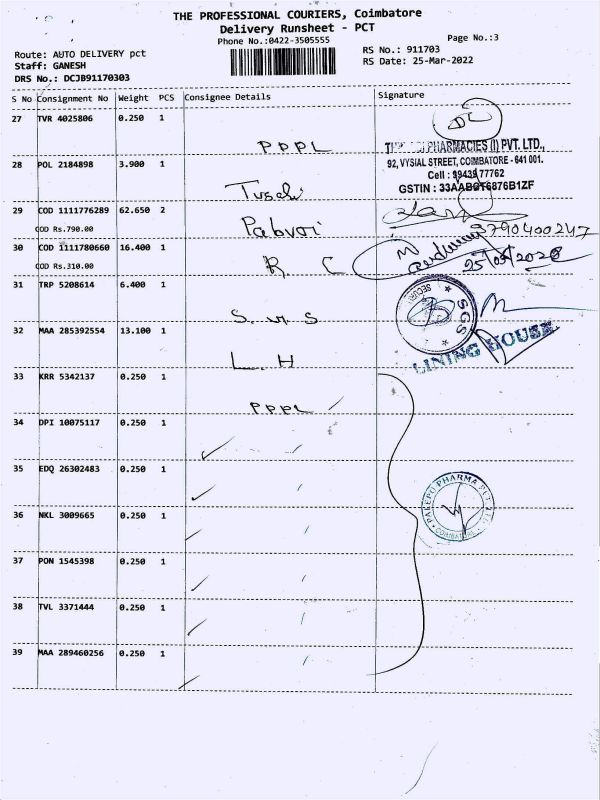 THE PROFESSIONAL COURIERS, Coimbatore
Delivery Runsheet - PCT
Phone No.:0422-3505555
Page No.:3
Route: AUTO DELIVERY pct
Staff: GANESH
DRS No.: DCJB91170303
RS No.: 911703
RS Date: 25-Mar-2022
S No Consignment No Weight PCS Consignee Details Signature
27 TVR 4025806 0.250 1
PPPL
PHARMACIES (I) PVT. LTD.,
92, VYSIAL STREET, COIMBATORE - 641 001.
Cell : 99439 77762
GSTIN : 33AABCT6876B1ZF
28 POL 2184898 3.900 1
29 COD 1111776289 62.650 2
COD Rs.790.00
30 COD 1111780660 16.400 1
R C
COD Rs.310.00
31 TRP 5208614 6.400 1
S.M.S
SGS
32 MAA 285392554 13.100 1
L.H
LINING HOUSE
33 KRR 5342137 0.250 1
PPPL
34 DPI 10075117 0.250 1
35 EDQ 26302483 0.250 1
PALEPU PHARMA PVT LTD
COIMBATORE
36 NKL 3009665 0.250 1
37 PON 1545398 0.250 1
38 TVL 3371444 0.250 1
39 MAA 289460256 0.250 1